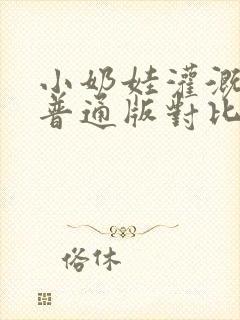 小奶娃灌溉
普通版對比
俗休